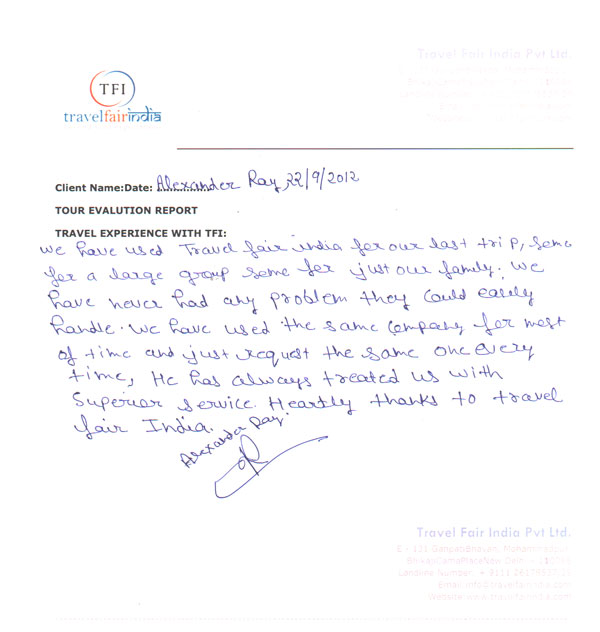 Travel Fair India Pvt Ltd.
TFI
travelfairindia
Client Name:Date: Alexander Ray, 22/9/2012
TOUR EVALUTION REPORT
TRAVEL EXPERIENCE WITH TFI:
We have used Travel fair india for our last trip, some
for a large group some for just our family. We
have never had any problem they could easily
handle. We have used the same company for most
of time and just request the same one every
time, He has always treated us with
Superior service. Heartly thanks to travel
fair India.
Alexander Ray.
Travel Fair India Pvt Ltd.
E - 121 Ganpati Bhavan, Mohammedpur,
Bhikaji Cama Place New Delhi -
Landline Number: + 9111
Email: info@travelfairindia.com
Website: www.travelfairindia.com